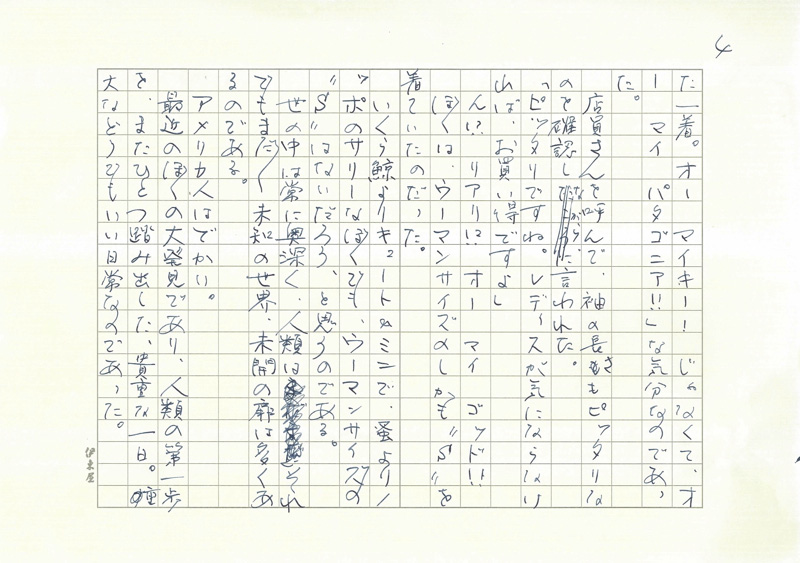 4
た一着。オー マイキー! じゃなくて、オ
ー マイ パタゴニア!!」な気分なのであっ
た。
店員さんを呼んで、袖の長さもピッタリな
のを確認しながら言われた。
「ピッタリですね。レディスが気にならなけ
れば、お買い得ですよ」
ん!? リアリィ!? オー マイ ゴッド!!
ぼくは、ウーマンサイズのしかも〝S〟を
着ていたのだった。
いくら鯨よりキュートでミミで、蚤よりノ
ッポのサリーなぼくでも、ウーマンサイズの
〝S〟はないだろう、と思うのである。
世の中は常に奥深く、人類はそれ
でもまだ未知の世界、未開の扉は多くあ
るのである。
アメリカ人はでかい。
最近のぼくの大発見であり、人類の第一歩
を、またひとつ踏み出した、貴重な一日。
大などうでもいい日常なのであった。
伊東屋